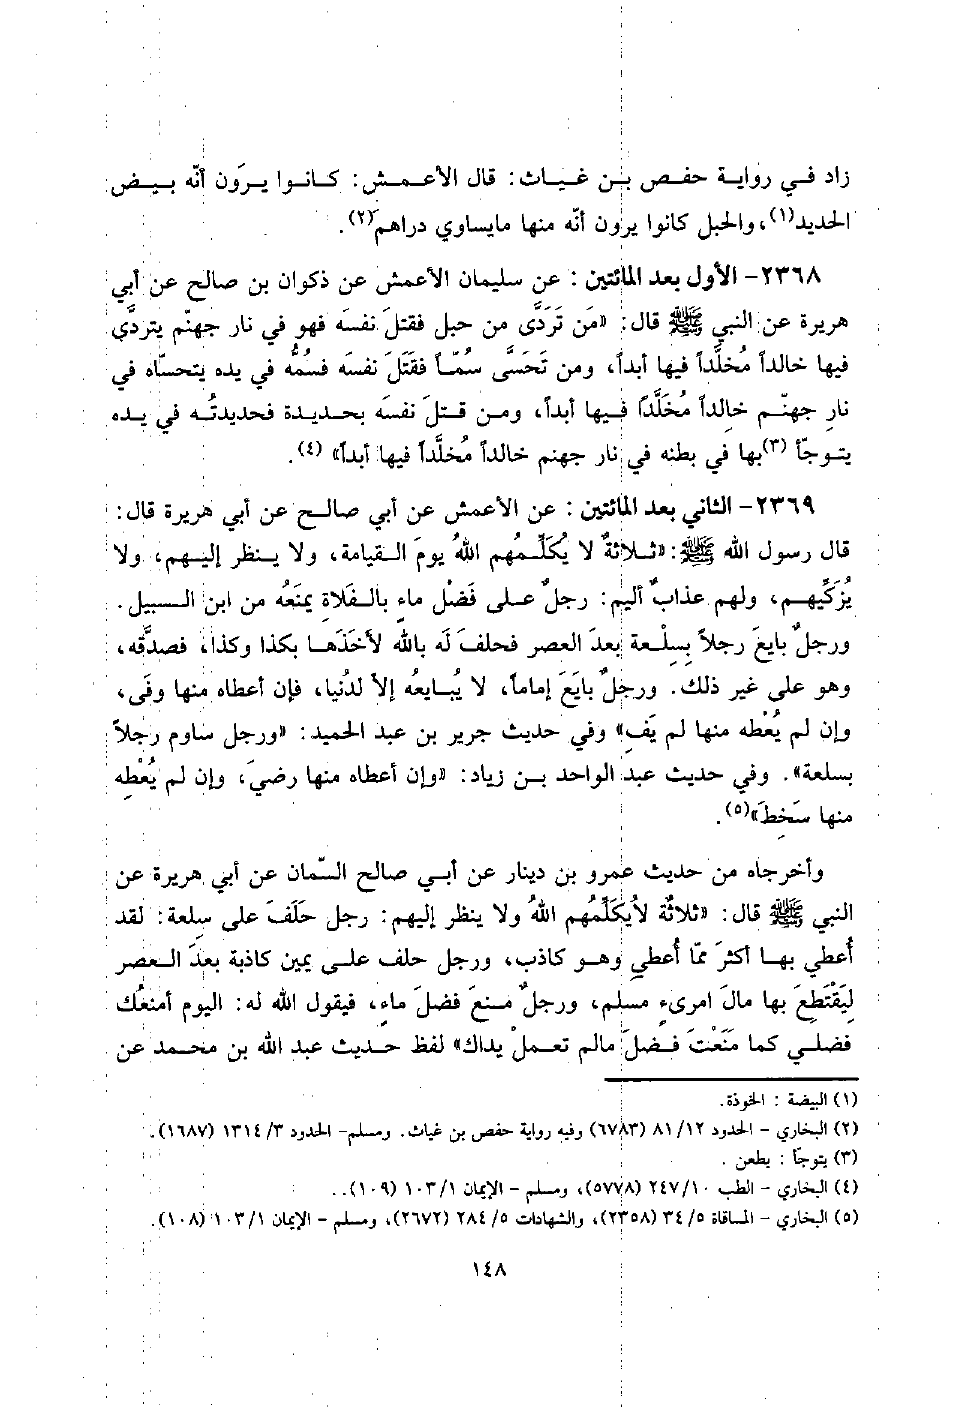 زاد في رواية حفص بن غياث: قال الأعمش: كانوا يرَون أنّه بيض
الحديد(١)، والحبل كانوا يرون أنّه منها مايساوي دراهم(٢).
٢٣٦٨- الأول بعد المائتين: عن سليمان الأعمش عن ذكوان بن صالح عن أبي
هريرة عن النبي ﷺ قال: «مَن تَرَدَّى من جبل فقتلَ نفسَه فهو في نار جهنّم يتردَّى
فيها خالداً مُخلَّداً فيها أبداً، ومن تَحَسَّى سُمّاً فقَتَلَ نفسَه فسُمُّه في يده يتحسّاه في
نارِ جهنّم خالِداً مُخَلَّداً فيها أبداً، ومن قتلَ نفسَه بحديدة فحديدتُه في يده
يتوجّأ (٣)بها في بطنه في نار جهنم خالداً مُخلَّداً فيها أبداً» (٤).
٢٣٦٩- الثاني بعد المائتين: عن الأعمش عن أبي صالح عن أبي هريرة قال:
قال رسول الله ﷺ: «ثلاثةٌ لا يُكلِّمُهم اللهُ يومَ القيامة، ولا ينظر إليهم، ولا
يُزَكِّيهم، ولهم عذابٌ أليم: رجلٌ على فَضْل ماءٍ بالفَلاةِ يمنَعُه من ابن السبيل.
ورجلٌ بايعَ رجلاً بِسِلْعة بعدَ العصر فحلفَ لَه بالله لأخَذَها بكذا وكذا، فصدَّقه،
وهو على غير ذلك. ورجلٌ بايَعَ إماماً، لا يُبايعه إلا لدُنيا، فإن أعطاه منها وفَى،
وإن لم يُعْطه منها لم يَفِ» وفي حديث جرير بن عبد الحميد: «ورجل ساوم رجلاً
بسلعة». وفي حديث عبد الواحد بن زياد: «وإن أعطاه منها رضيَ، وإن لم يُعْطِه
منها سَخِطَ»(٥).
وأخرجاه من حديث عمرو بن دينار عن أبي صالح السّمان عن أبي هريرة عن
النبي ﷺ قال: «ثلاثةٌ لايُكلِّمُهم اللهُ ولا ينظر إليهم: رجل حَلَفَ على سِلعة: لقد
أُعطي بها أكثرَ ممّا أُعطي وهو كاذب، ورجل حلف على يمين كاذبة بعدَ العصر
لِيَقْتَطِعَ بها مالَ امرىءٍ مسلم، ورجلٌ منعَ فضلَ ماءٍ، فيقول الله له: اليوم أمنعُك
فضلي كما مَنَعْتَ فضلَ مالم تعملْ يداك» لفظ حديث عبد الله بن محمد عن
(١) البيضة : الخوذة.
(٢) البخاري - الحدود ١٢/ ٨١ (٦٧٨٣) وفيه رواية حفص بن غياث. ومسلم- الحدود ٣/ ١٣١٤ (١٦٨٧).
(٣) يتوجّأ : يطعن .
(٤) البخاري - الطب ١٠/ ٢٤٧ (٥٧٧٨)، ومسلم - الإيمان ١/ ١٠٣ (١٠٩)..
(٥) البخاري - المساقاة ٥/ ٣٤ (٢٣٥٨)، والشهادات ٥/ ٢٨٤ (٢٦٧٢)، ومسلم - الإيمان ١/ ١٠٣ (١٠٨).
١٤٨